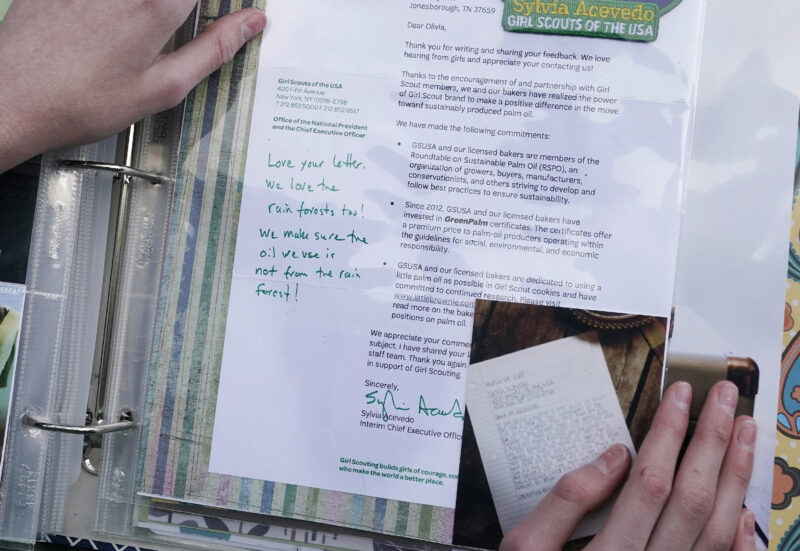 Jonesborough, TN 37659
Sylvia Acevedo
GIRL SCOUTS OF THE USA
Dear Olivia,
Thank you for writing and sharing your feedback. We love
hearing from girls and appreciate your contacting us!
Thanks to the encouragement of and partnership with Girl
Scout members, we and our bakers have realized the power
of Girl Scout brand to make a positive difference in the move
toward sustainably produced palm oil.
We have made the following commitments:
• GSUSA and our licensed bakers are members of the
Roundtable on Sustainable Palm Oil (RSPO), an
organization of growers, buyers, manufacturers,
conservationists, and others striving to develop and
follow best practices to ensure sustainability.
• Since 2012, GSUSA and our licensed bakers have
invested in GreenPalm certificates. The certificates offer
a premium price to palm-oil producers operating within
the guidelines for social, environmental, and economic
responsibility.
• GSUSA and our licensed bakers are dedicated to using a
little palm oil as possible in Girl Scout cookies and have
committed to continued research. Please visit
www.littlebrownie.com
read more on the bake
positions on palm oil.
We appreciate your comme
subject. I have shared your
staff team. Thank you again
in support of Girl Scouting.
Sincerely,
Sylvia Acevedo
Interim Chief Executive Offic
Girl Scouting builds girls of courage, con
who make the world a better place.
Girl Scouts of the USA
420 Fifth Avenue
New York, NY 10018-2798
T 212 852 5000 F 212 852 6517
Office of the National President
and the Chief Executive Officer
Love your letter.
We love the
rain forests too!
We make sure the
oil we use is
not from the rain
forest!